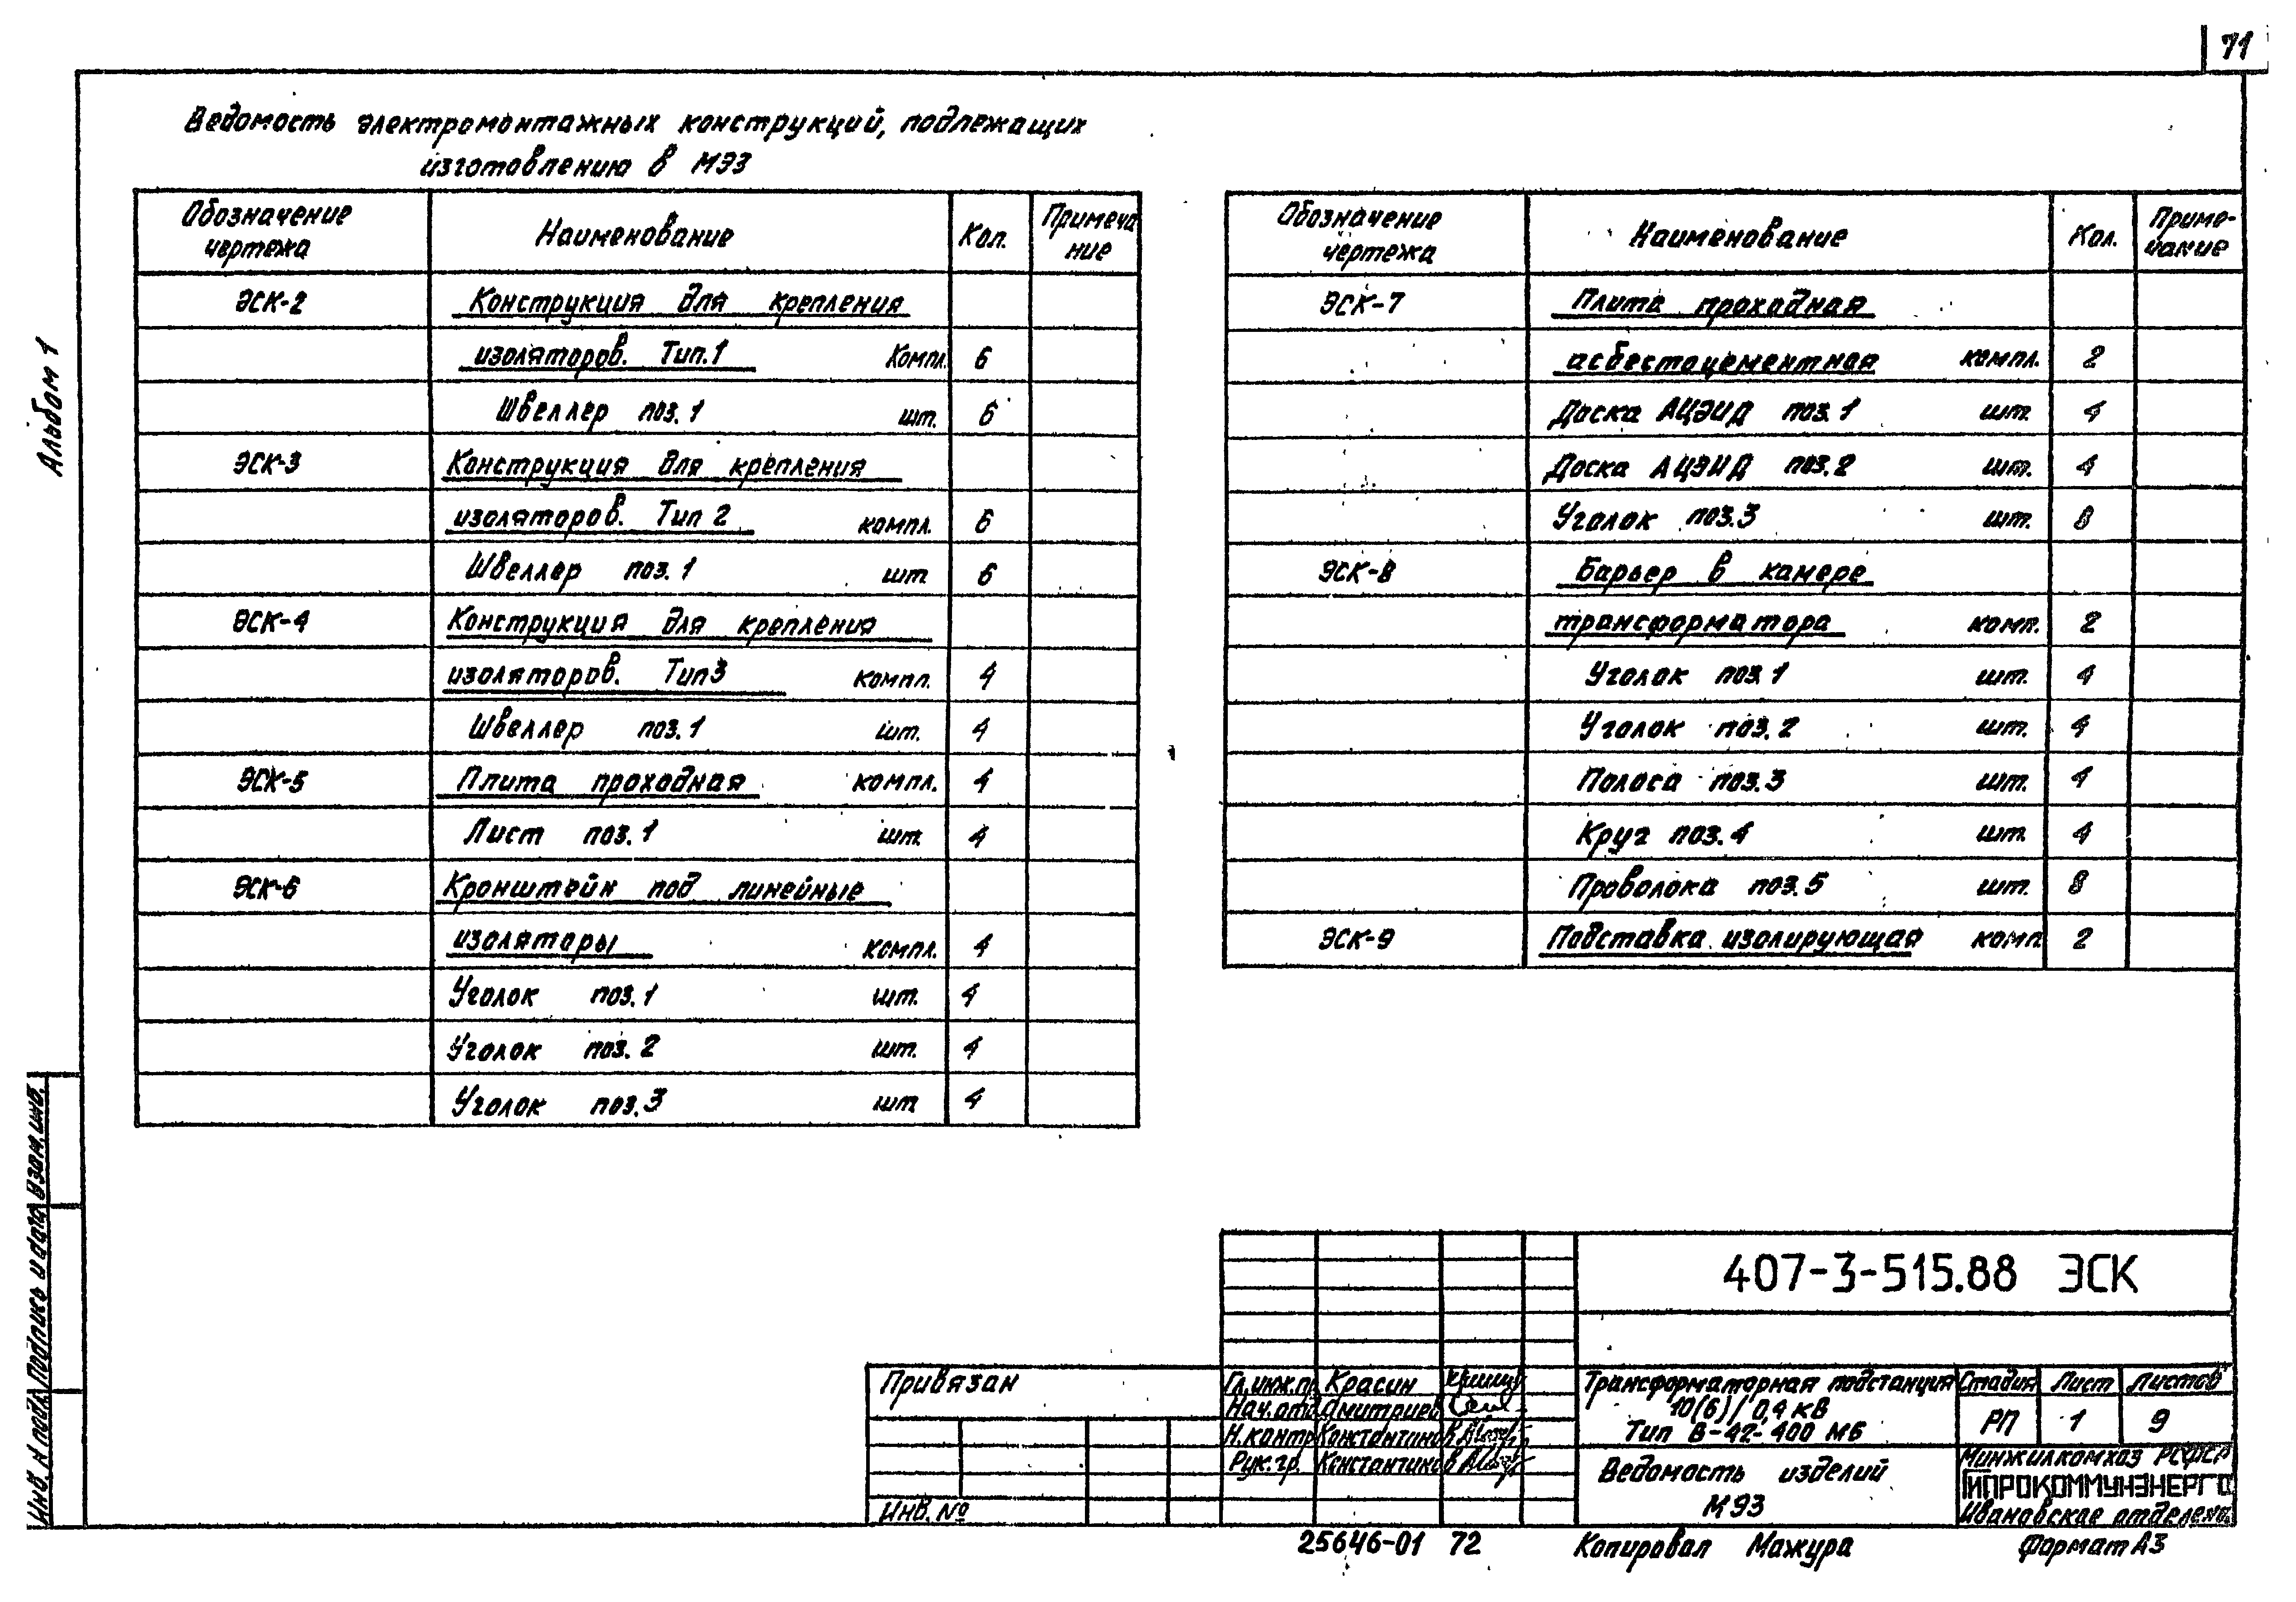 71
Альбом 1
Ведомость электромонтажных конструкций, подлежащих
изготовлению в МЭЗ
Обозначение чертежа Наименование Кол. Примеча ние
ЭСК-2 Конструкция для крепления
изоляторов. Тип.1 Компл. 6
Швеллер поз.1 шт. 6
ЭСК-3 Конструкция для крепления
изоляторов. Тип 2 компл. 6
Швеллер поз.1 шт 6
ЭСК-4 Конструкция для крепления
изоляторов. Тип3 компл. 4
Швеллер поз.1 шт. 4
ЭСК-5 Плита проходная компл. 4
Лист поз.1 шт. 4
ЭСК-6 Кронштейн под линейные
изоляторы компл. 4
Уголок поз.1 шт. 4
Уголок поз.2 шт. 4
Уголок поз.3 шт 4
Обозначение чертежа Наименование Кол. Приме- чание
ЭСК-7 Плита проходная
асбестоцементная компл. 2
Доска АЦЭИД поз.1 шт. 4
Доска АЦЭИД поз.2 шт. 4
Уголок поз.3 шт. 8
ЭСК-8 Барьер в камере
трансформатора комп. 2
Уголок поз.1 шт. 4
Уголок поз.2 шт. 4
Полоса поз.3 шт. 4
Круг поз.4 шт. 4
Проволока поз.5 шт. 8
ЭСК-9 Подставка изолирующая комп 2
Инв. N подл. Подпись и дата Взам. инв.
407-3-515.88 ЭСК
Привязан
Инв. №
Гл.инж.пр. Красин
Нач.отд Дмитриев
Н.контр Константинов
Рук.гр. Константинов
Трансформаторная подстанция
10(6)/0,4 кВ
Тип В-42-400 М6
Стадия Лист Листов
РП 1 9
Ведомость изделий
МЭЗ
Минжилкомхоз РСФСР
ГИПРОКОММУНЭНЕРГО
Ивановское отделен.
25646-01 72
Копировал Мажура
Формат А3